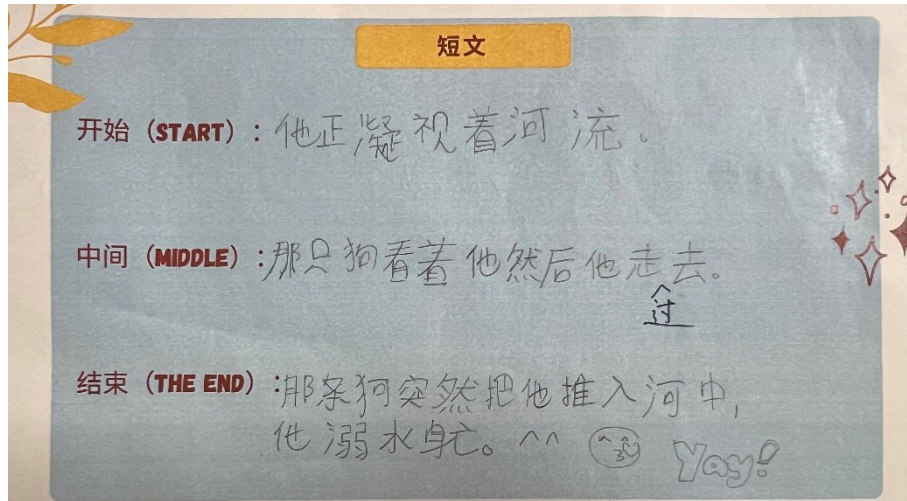 短文
开始（START）：他正凝视着河流。
中间（MIDDLE）：那只狗看着他然后他走去。
过
结束（THE END）：那条狗突然把他推入河中，
他溺水身亡。^^ Yay!